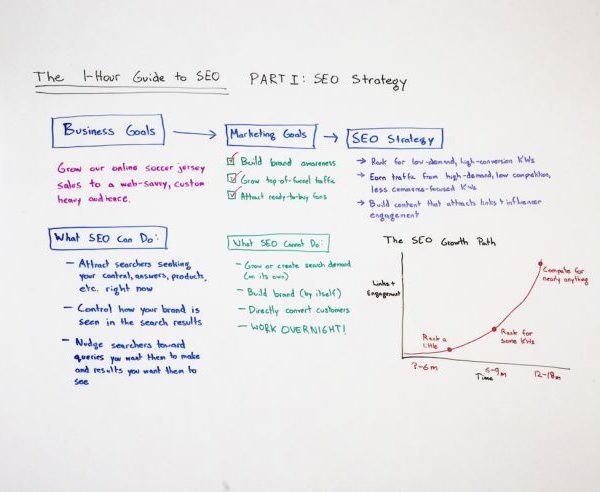 The 1-Hour Guide to SEO PART I: SEO Strategy
Business Goals
Marketing Goals
SEO Strategy
Grow our online soccer jersey
sales to a web-savvy, custom
heavy audience.
Build brand awareness
Grow top-of-funnel traffic
Attract ready-to-buy fans
→ Rank for low-demand, high-conversion KWs
→ Earn traffic from high-demand, low competition,
less commerce-focused KWs
→ Build content that attracts links + influencer
engagement
What SEO Can Do:
- Attract searchers seeking
your content, answers, products,
etc. right now
- Control how your brand is
seen in the search results
- Nudge searchers toward
queries you want them to make
and results you want them to
see
What SEO Cannot Do:
- Grow or create search demand
(on its own)
- Build brand (by itself)
- Directly convert customers
- WORK OVERNIGHT!
The SEO Growth Path
Links +
Engagement
Compete for
nearly anything
Rank a
little
Rank for
some KWs
3-6m
6-9m
12-18m
Time